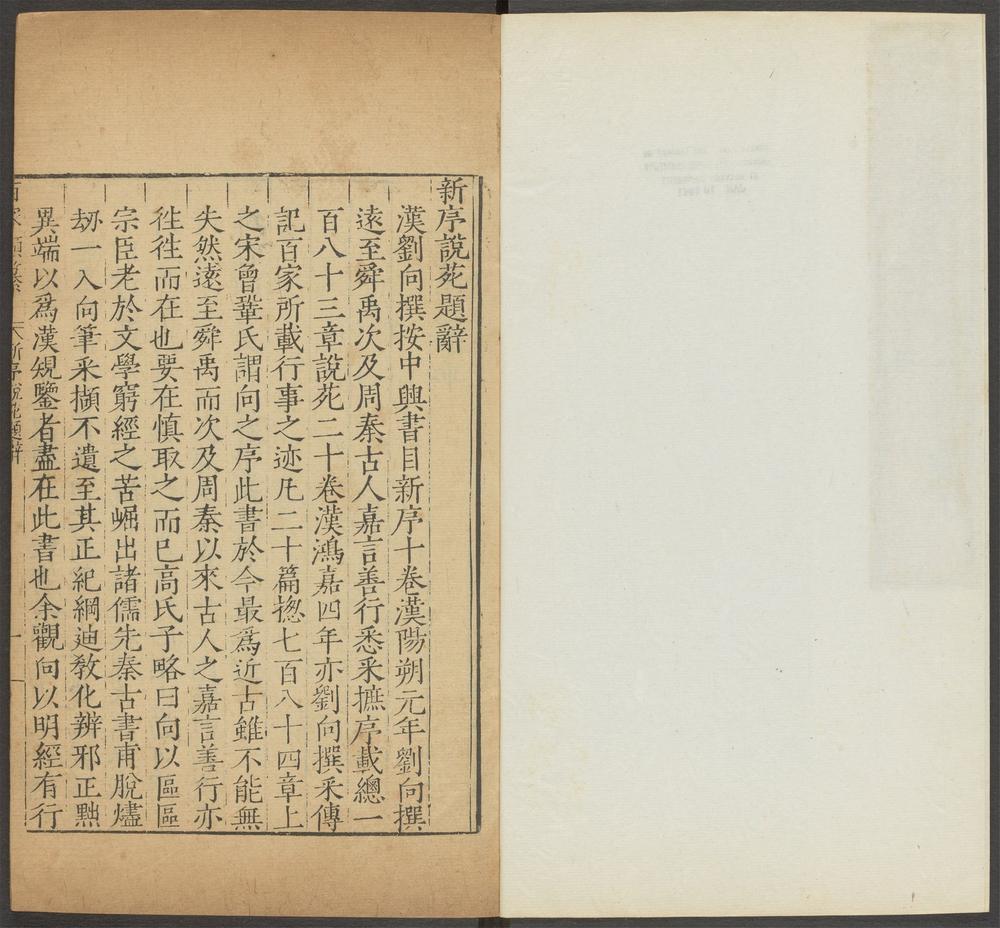 新序說苑題辭
漢劉向撰按中興書目新序十卷漢陽朔元年劉向撰
遠至舜禹次及周秦古人嘉言善行悉采摭序載總一
百八十三章說苑二十卷漢鴻嘉四年亦劉向撰采傳
記百家所載行事之迹凡二十篇揔七百八十四章上
之宋曾鞏氏謂向之序此書於今最爲近古雖不能無
失然遠至舜禹而次及周秦以來古人之嘉言善行亦
徃徃而在也要在慎取之而已高氏子略曰向以區區
宗臣老於文學窮經之苦崛出諸儒先秦古書甫脫燼
刼一入向筆采擷不遺至其正紀綱迪敎化辨邪正黜
異端以爲漢䂓鑒者盡在此書也余觀向以明經有行
新序說苑題辭
一